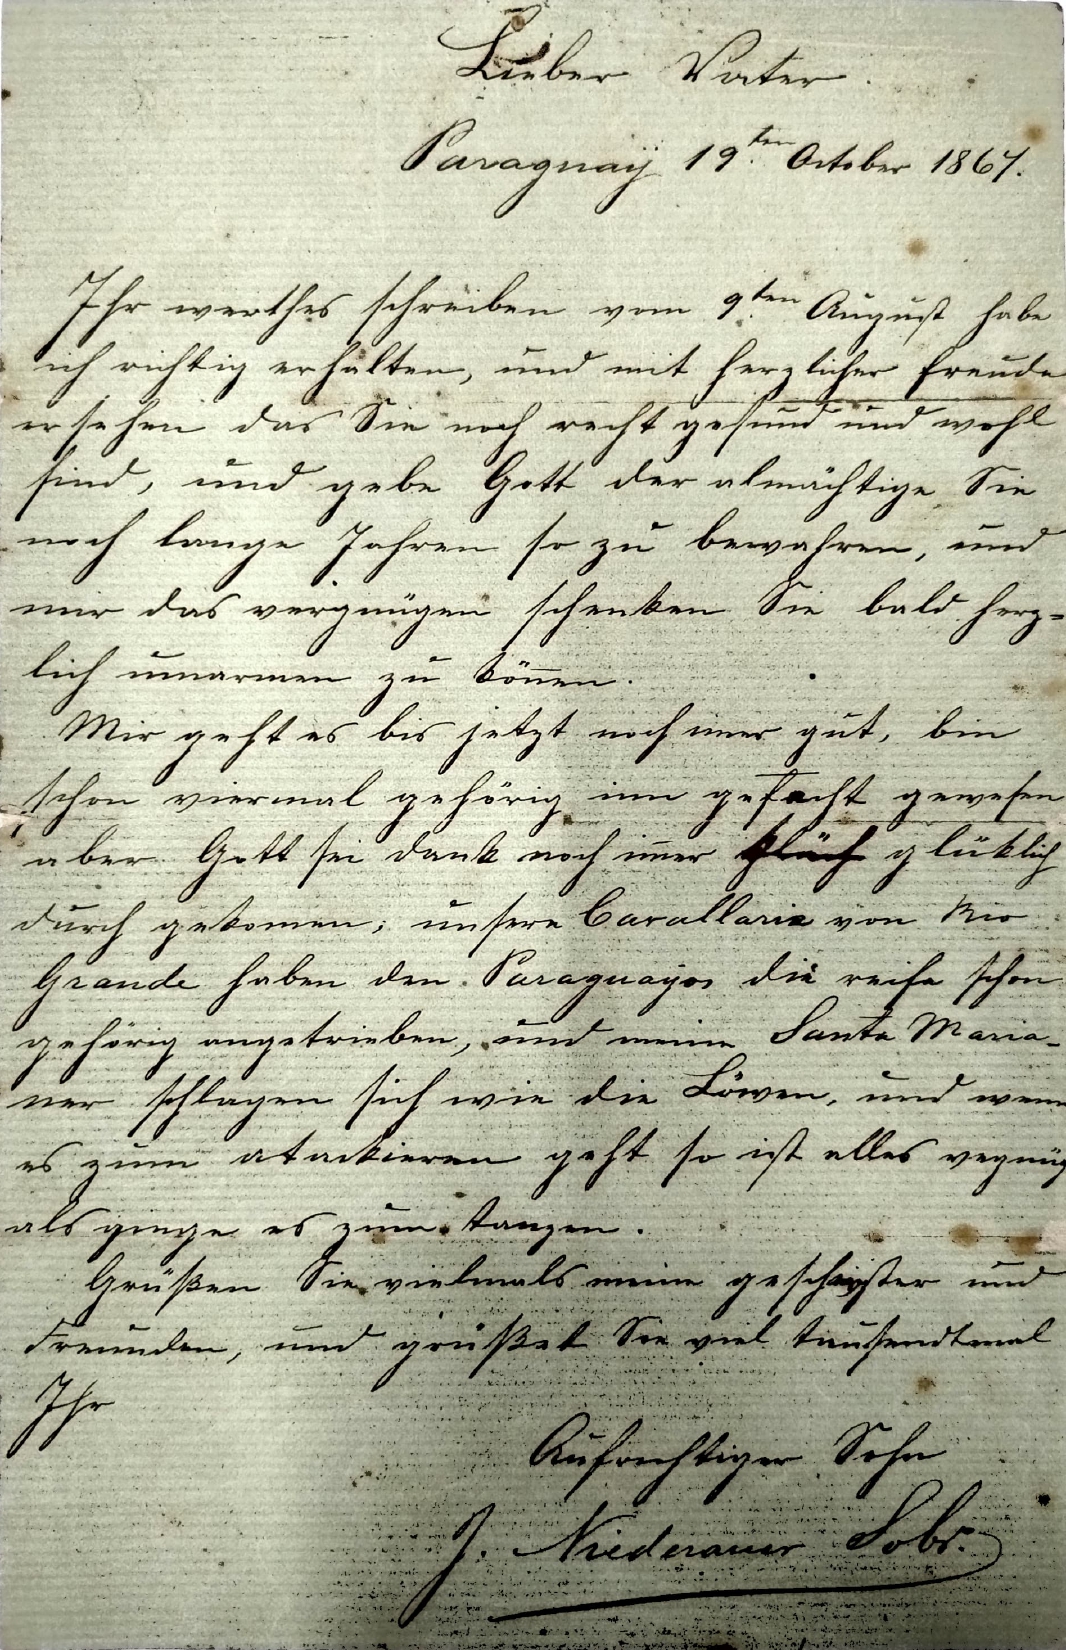 Lieber Vater.
Paraguaÿ 19ten October 1867.
Ihr werthes schreiben vom 9ten August habe
ich richtig erhalten, und mit herzlicher freude
ersehen das Sie noch recht gesund und wohl
sind, und gebe Gott der almächtige Sie
noch lange Jahren so zu bewahren, und
mir das vergnügen schenken Sie bald herz=
lich umarmen zu können.
Mir geht es bis jetzt noch imer gut, bin
schon viermal gehörig inn gefecht gewesen
aber Gott sei dank noch imer glüklich
durch gekomen; unsere Cavallarie von Rio
Grande haben den Paraguayos die reife schon
gehörig angetrieben, und meine Santa Maria-
ner schlagen sich wie die Löwen, und wenn
es zum atackieren geht so ist alles vegnüg
als ginge es zum tanzen.
Grüßen Sie vielmals meine geschwister und
Freunden, und grüßet Sie viel tausendtmal
Ihr
Aufrechtiger Sohn
J. Niederauer Sobr.